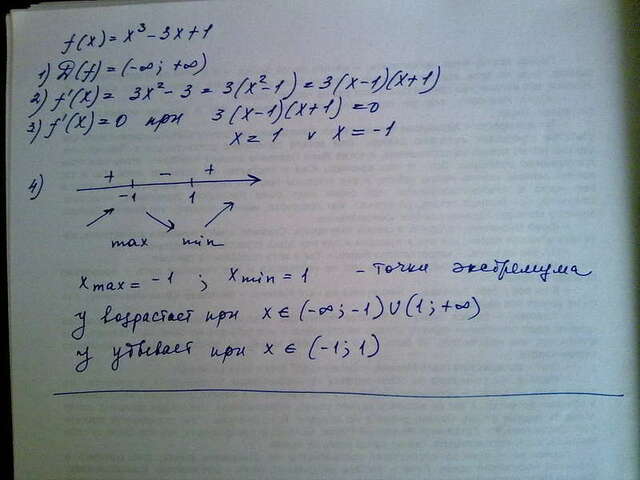 f(x) = x³ - 3x + 1
1) D(f) = (-∞; +∞)
2) f'(x) = 3x² - 3 = 3(x² - 1) = 3(x-1)(x+1)
3) f'(x) = 0 при 3(x-1)(x+1) = 0
x = 1 v x = -1
4) + - +
-1 1
max min
x max = -1 ; x min = 1 - точки экстремума
y возрастает при x ∈ (-∞; -1) ∪ (1; +∞)
y убывает при x ∈ (-1; 1)